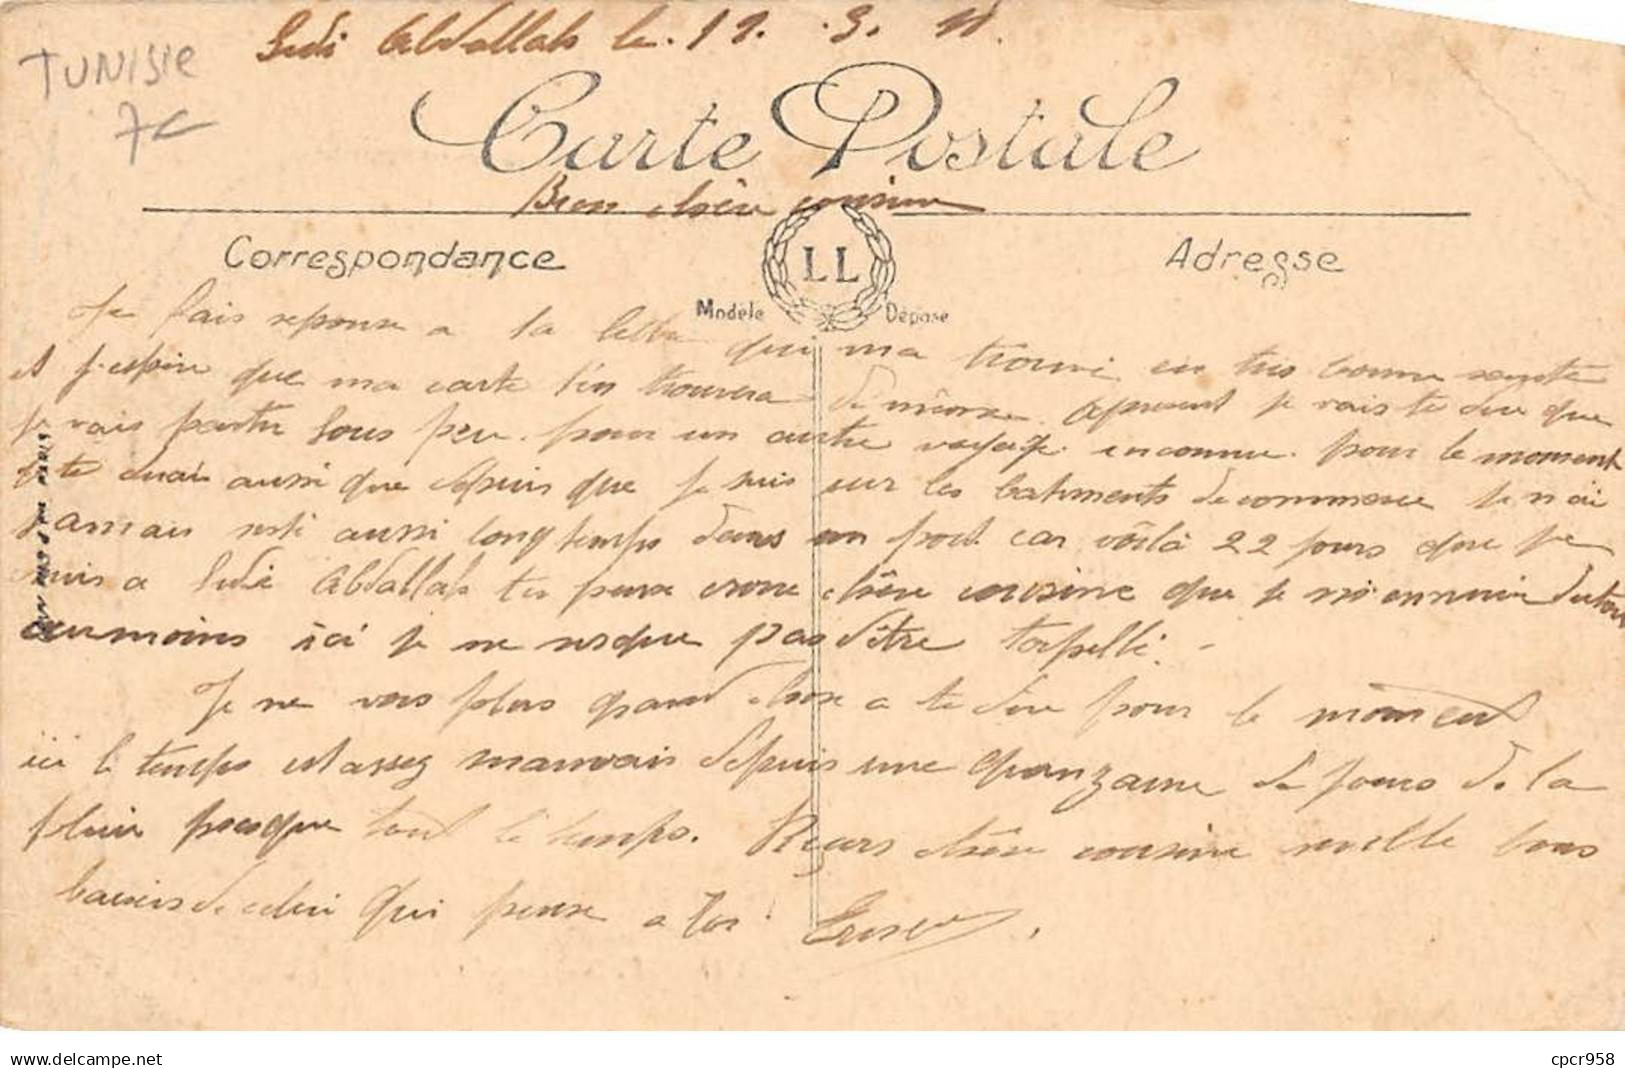 TUNISIE
Sidi Abdallah le. 19. 3. 18.
7c
Carte Postale
Bien chère cousine
Correspondance
LL
Adresse
Modèle Déposé
Je fais reponse a la lettre qui ma trouvé en tres bonne sante
et j'espère que ma carte t'en trouvera de même. Apresent je vais te dire que
je vais partir sous peu. pour un autre voyage. inconnu. pour le moment
je te dirai aussi que depuis que je suis sur les batiments de commerce je n'ai
jamais resté aussi longtemps dans un port car voilà 22 jours que je
suis a Sidi Abdallah tu peux croire chère cousine que je m'ennuie
au moins ici je ne risque pas d'être torpillé.
Je ne vois plus grand chose a te dire pour le moment
ici le temps est assez mauvais depuis une quanzaine de jours de la
pluie presque tout le temps. Reçois chère cousine mille bons
baisers de celui qui pense a toi
delcampe.net
cpcr958